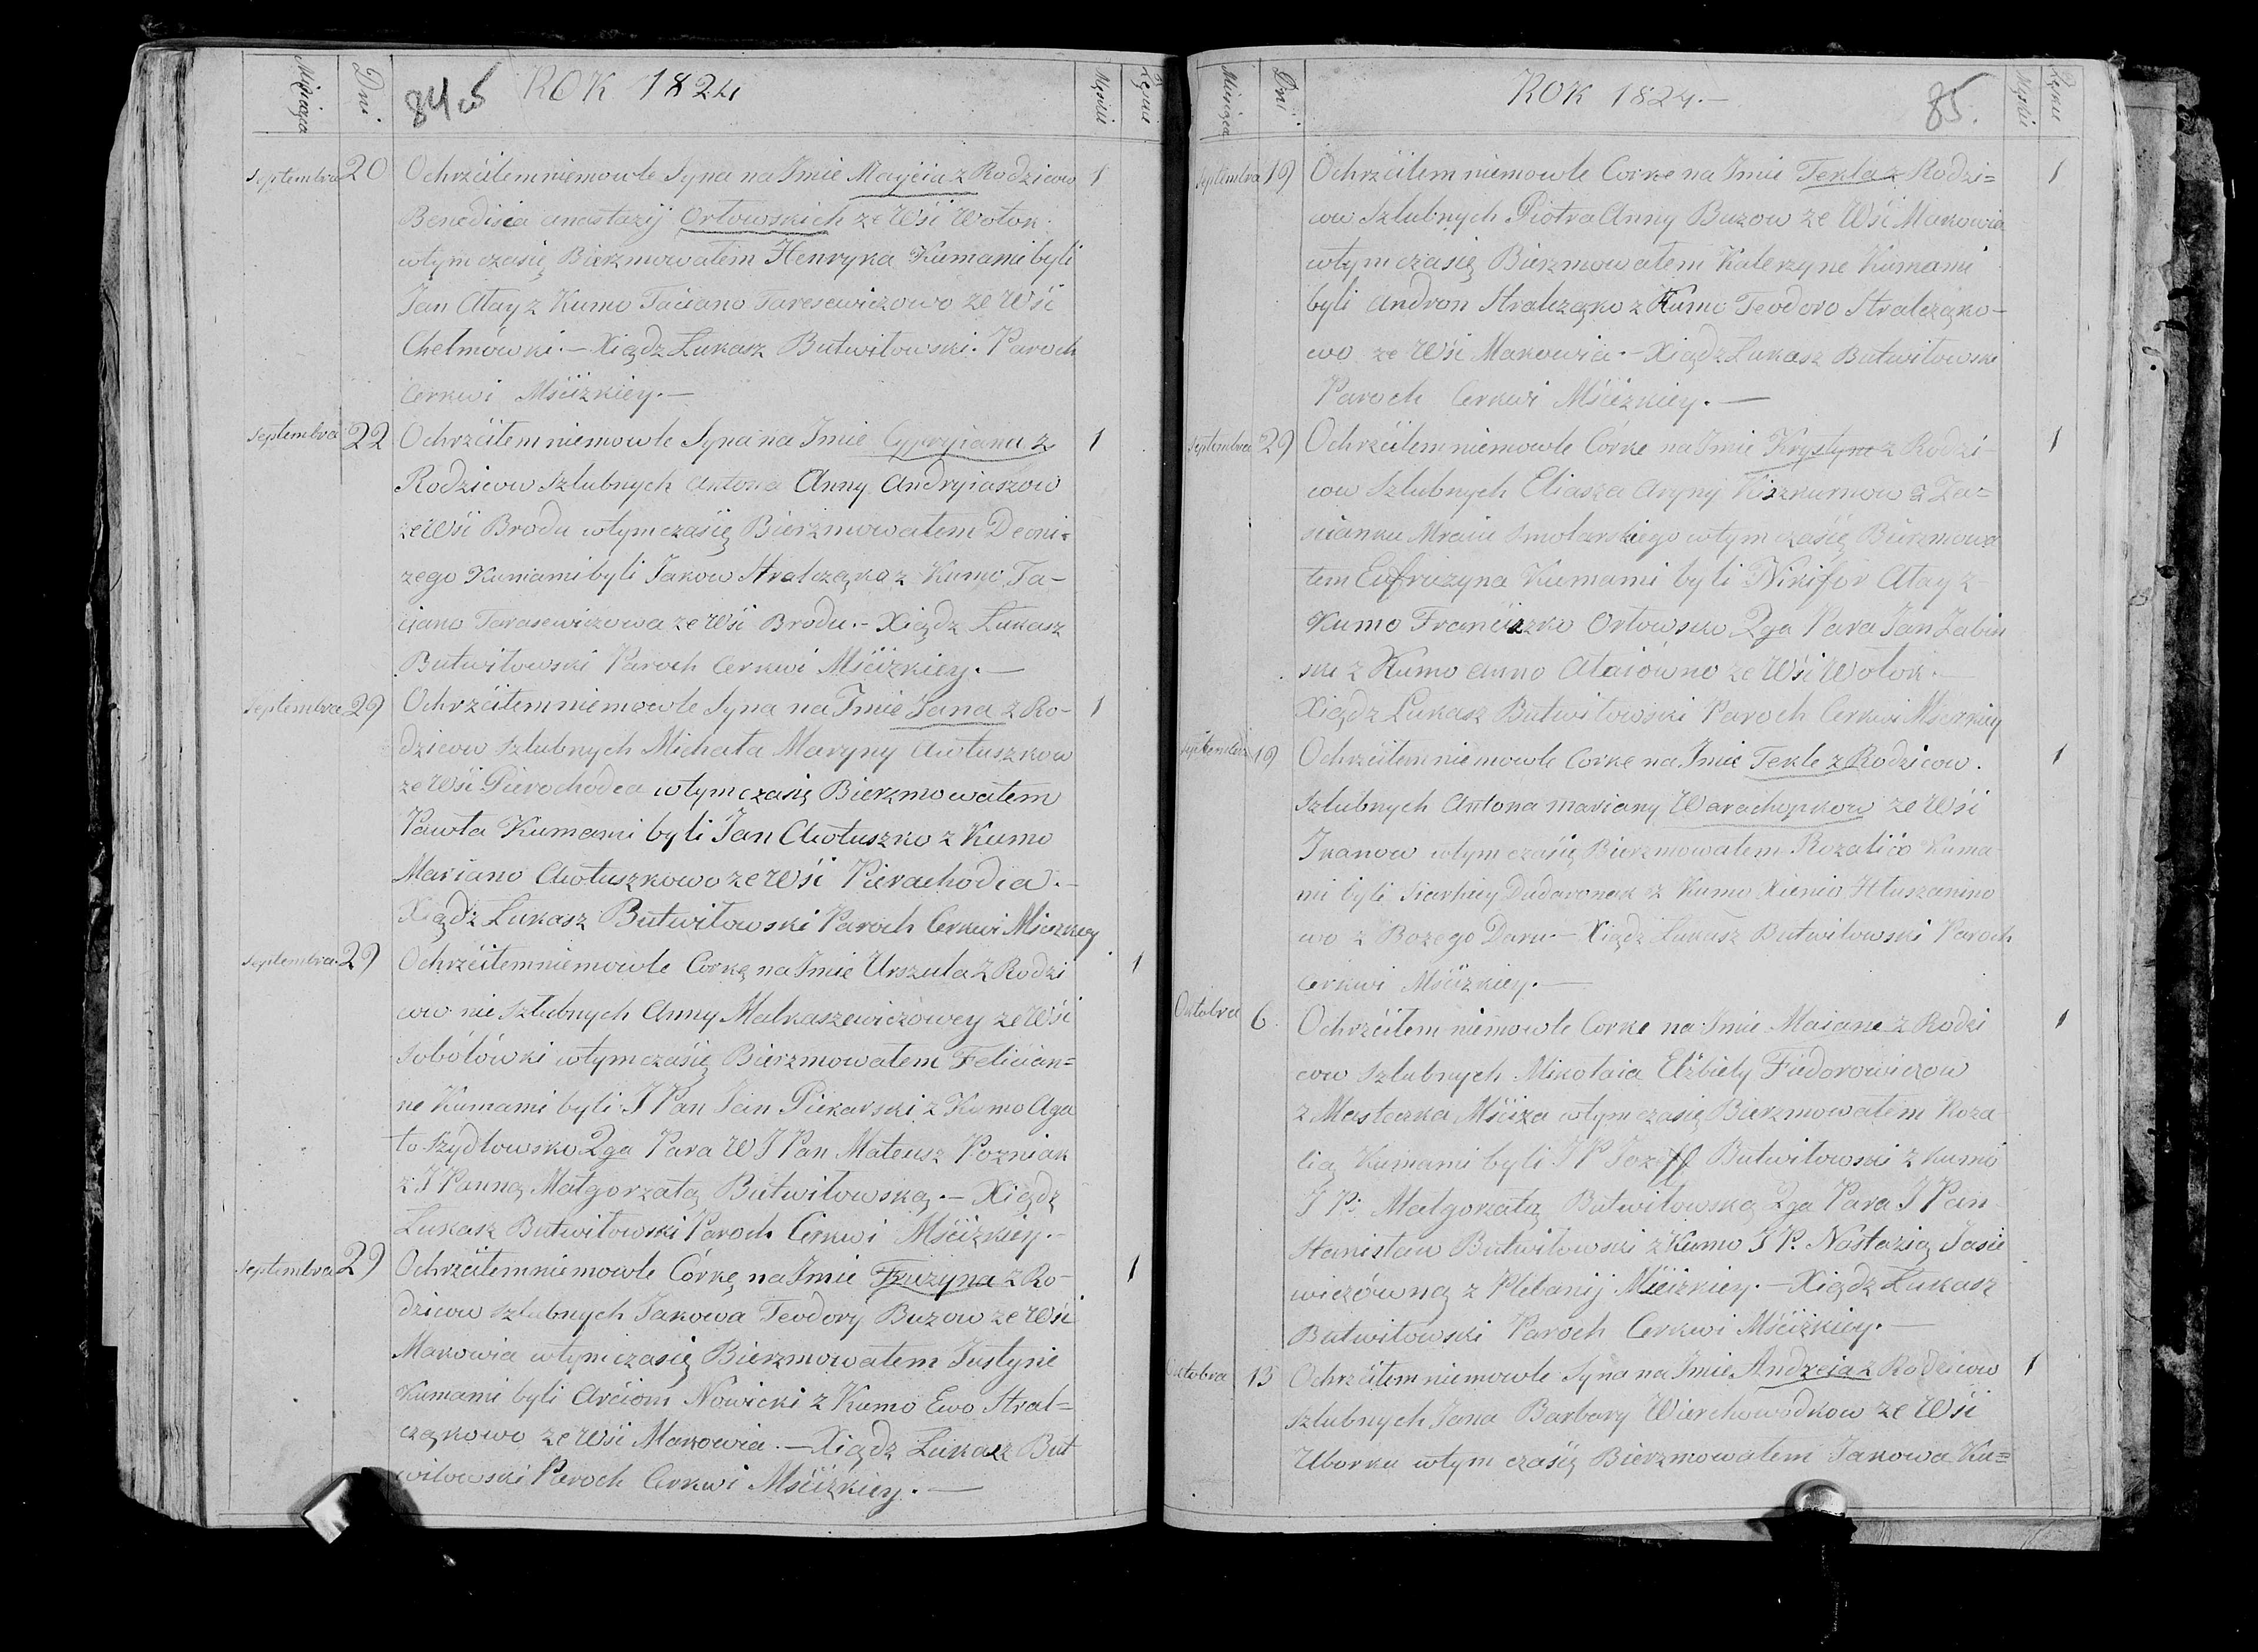 Miesiąca Dni. 84 ROK 1824 Męskie Żeńskie
Septembra 20 Ochrzciłem niemowle Syna na Imie Mayścia z Rodzicow 1
Benedisia Anastazij Orłowskich ze Wśi Wołok.
wtym czasię Bierzmowałem Henryka Kumami byli
Jan Ałay z Kumo Taciano Taresewiczowo ze Wśi
Chełmówki. – Xiądz Łukasz Butwiłowski. Paroch
Cerkwi Mściżkiey. –
Septembra 22 Ochrzciłem niemowle Syna na Imie Cypryiana z 1
Rodzicow szlubnych Antona Anny Andryiaszow
ze Wśi Brodu wtym czasię Bierzmowałem Deoni-
zego Kumami byli Jakow Stralczęko z Kumo Ta-
ciano Tarasewiczowa ze Wśi Brodu. – Xiądz Łukasz
Butwiłowski Paroch Cerkwi Mściżkiey. –
Septembra 29 Ochrzciłem niemowle Syna na Imie Jana z Ro- 1
dzicow szlubnych Michała Maryny Awtuszkow
ze Wśi Pierochodca wtym czasię Bierzmowałem
Pawła Kumami byli Jan Awtuszko z Kumo
Mariano Awtuszkowo ze Wśi Pierachodca. –
Xiądz Łukasz Butwiłowski Paroch Cerkwi Msciżkiey
Septembra 29 Ochrzciłem niemowle Corkę na Imie Urszula z Rodzi 1
cow nie szlubnych Anny Malkaszewiczowey ze Wśi
Sobolówki wtym czasię Bierzmowałem Felician=
ne Kumami byli J Pan Jan Piekarski z Kumo Aga
to Szydłowsko 2ga Para W J Pan Mateusz Pozniak
z J Panną Małgorzatą Butwiłowską. – Xiądz
Łukasz Butwiłowski Paroch Cerkwi Mściżkiey. –
Septembra 29 Ochrzciłem niemowle Córkę na Imie Fruzyna z Ro- 1
dzicow szlubnych Jakowa Teodory Buzow ze Wśi
Makowia wtym czasię Bierzmowałem Justynie
Kumami byli Arciom Nowicki z Kumo Ewo Stral=
czękowo ze Wśi Makowia. – Xiądz Łukasz But
wiłowski Paroch Cerkwi Mściżkiey. –
Miesiąca Dni. ROK 1824. – 85. Męskie Żeńskie
Septembra 19 Ochrzciłem niemowle Corke na Imie Tekla z Rodzi= 1
cow szlubnych Piotra Anny Buzow ze Wśi Makowia
wtym czasię Bierzmowałem Katerzyne Kumami
byli Andron Stralczęko z Kumo Teodoro Stralczęko-
wo ze Wśi Makowia. – Xiądz Łukasz Butwiłowski
Paroch Cerkwi Mściżkiey. –
Septembra 29 Ochrzciłem niemowle Córke na Imie Krystyne z Rodzi- 1
cow szlubnych Eliasza Aryny Kiszkurnow z Za=
scianku Smolarskiego wtym czasię Bierzmowa
łem Eufruzyna Kumami byli Nikifor Ałay z
Kumo Franciszko Orłowsko 2ga Para Jan Zabin
ski z Kumo Anno Ałaiówno ze Wśi Wołok. –
Xiądz Łukasz Butwiłowski Paroch Cerkwi Mściżkiey
Septembra 19 Ochrzciłem niemowle Corke na Imie Tekle z Rodzicow. 1
szlubnych Antona Mariany Warachopkow ze Wśi
Iwanow wtym czasię Bierzmowałem Rozalio Kuma
mi byli Siarhiey Dudaronek z Kumo Xienio Hłuszanino
wo z Bożego Daru – Xiądz Łukasz Butwiłowski Paroch
Cerkwi Mściżkiey. –
Oktobra 6. Ochrzciłem niemowle Corke na Imie Maiane z Rodzi 1
cow szlubnych Mikołaia Elżbiety Fiedorowiczow
z Mastaczka Mściża wtym czasię Bierzmowałem Roza
lią Kumami byli J P Jozeff Butwiłowski z Kumo
J P. Małgorzatą Butwiłowską 2ga Para J Pan
Stanisław Butwiłowski z Kumo J P. Nastazią Jasie
wiczówną z Plebanij Mściżkiey. – Xiądz Łukasz
Butwiłowski Paroch Cerkwi Mściżkiey. –
Oktobra 13 Ochrzciłem niemowle Syna na Imie Andzeia z Rodzicow 1
szlubnych Jana Barbary Wierchowodkow ze Wśi
Uborku wtym czasię Bierzmowałem Jakowa Ku=